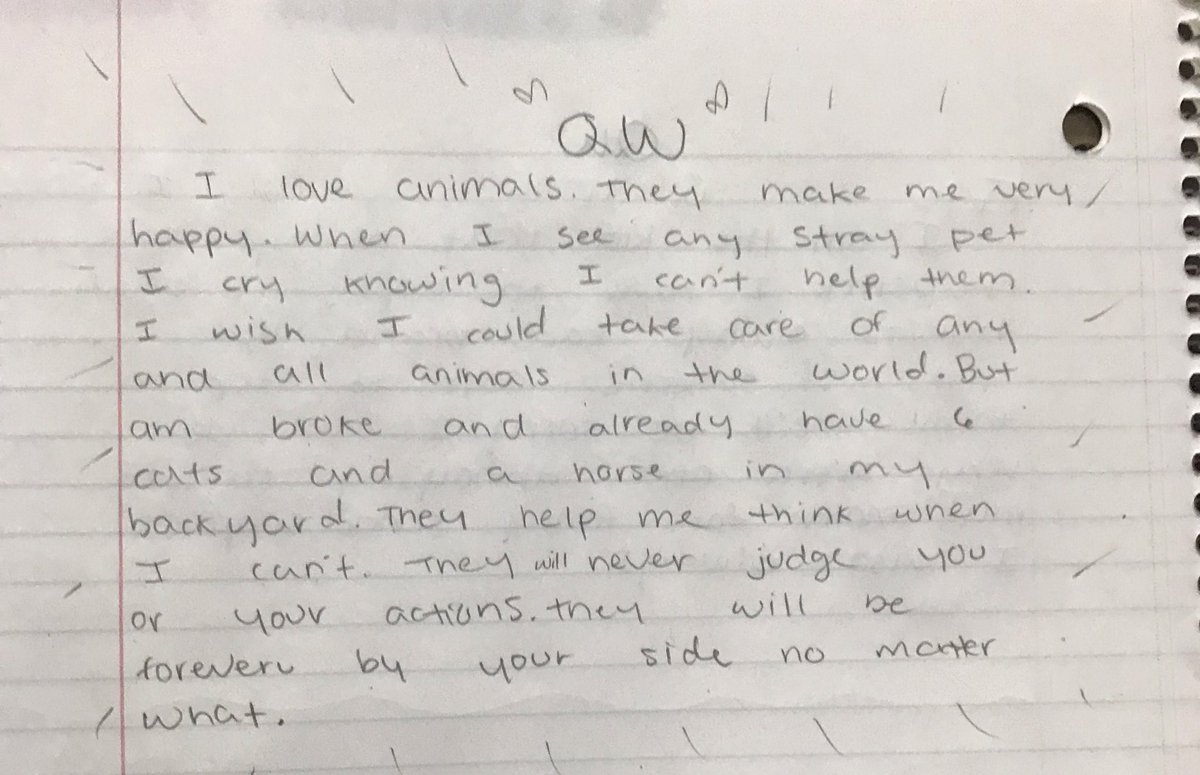 QW
I love animals. They make me very
happy. When I see any stray pet
I cry knowing I can't help them.
I wish I could take care of any
and all animals in the world. But
am broke and already have 6
cats and a horse in my
backyard. They help me think when
I can't. They will never judge you
or your actions. they will be
foreveru by your side no matter
what.